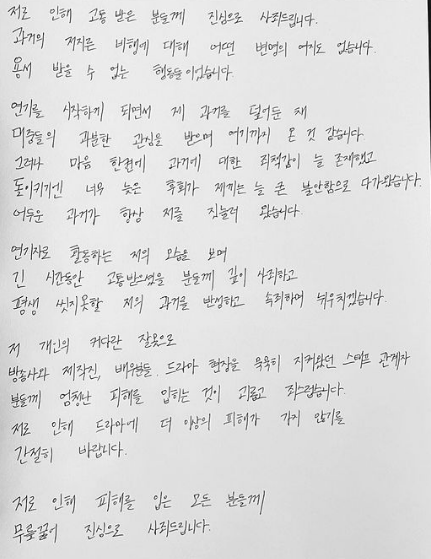 저로 인해 고통 받은 분들께 진심으로 사죄드립니다.
과거의 저지른 비행에 대해 어떤 변명의 여지도 없습니다.
용서 받을 수 없는 행동들이었습니다.
연기를 시작하게 되면서 제 과거를 덮어둔 채
대중들의 과분한 관심을 받으며 여기까지 온 것 같습니다.
그러나 마음 한편에 과거에 대한 죄책감이 늘 존재했고
돌이키기엔 너무 늦은 후회가 제게는 늘 큰 불안함으로 다가왔습니다.
어두운 과거가 항상 저를 짓눌러 왔습니다.
연기자로 활동하는 저의 모습을 보며
긴 시간동안 고통받으셨을 분들께 깊이 사죄하고
평생 씻지못할 저의 과거를 반성하고 속죄하며 뉘우치겠습니다.
저 개인의 커다란 잘못으로
방송사와 제작진, 배우분들, 드라마 현장을 묵묵히 지켜왔던 스태프 관계자
분들께 엄청난 피해를 입히는 것이 괴롭고 죄스럽습니다.
저로 인해 드라마에 더 이상의 피해가 가지 않기를
간절히 바랍니다.
저로 인해 피해를 입은 모든 분들께
무릎꿇어 진심으로 사죄드립니다.